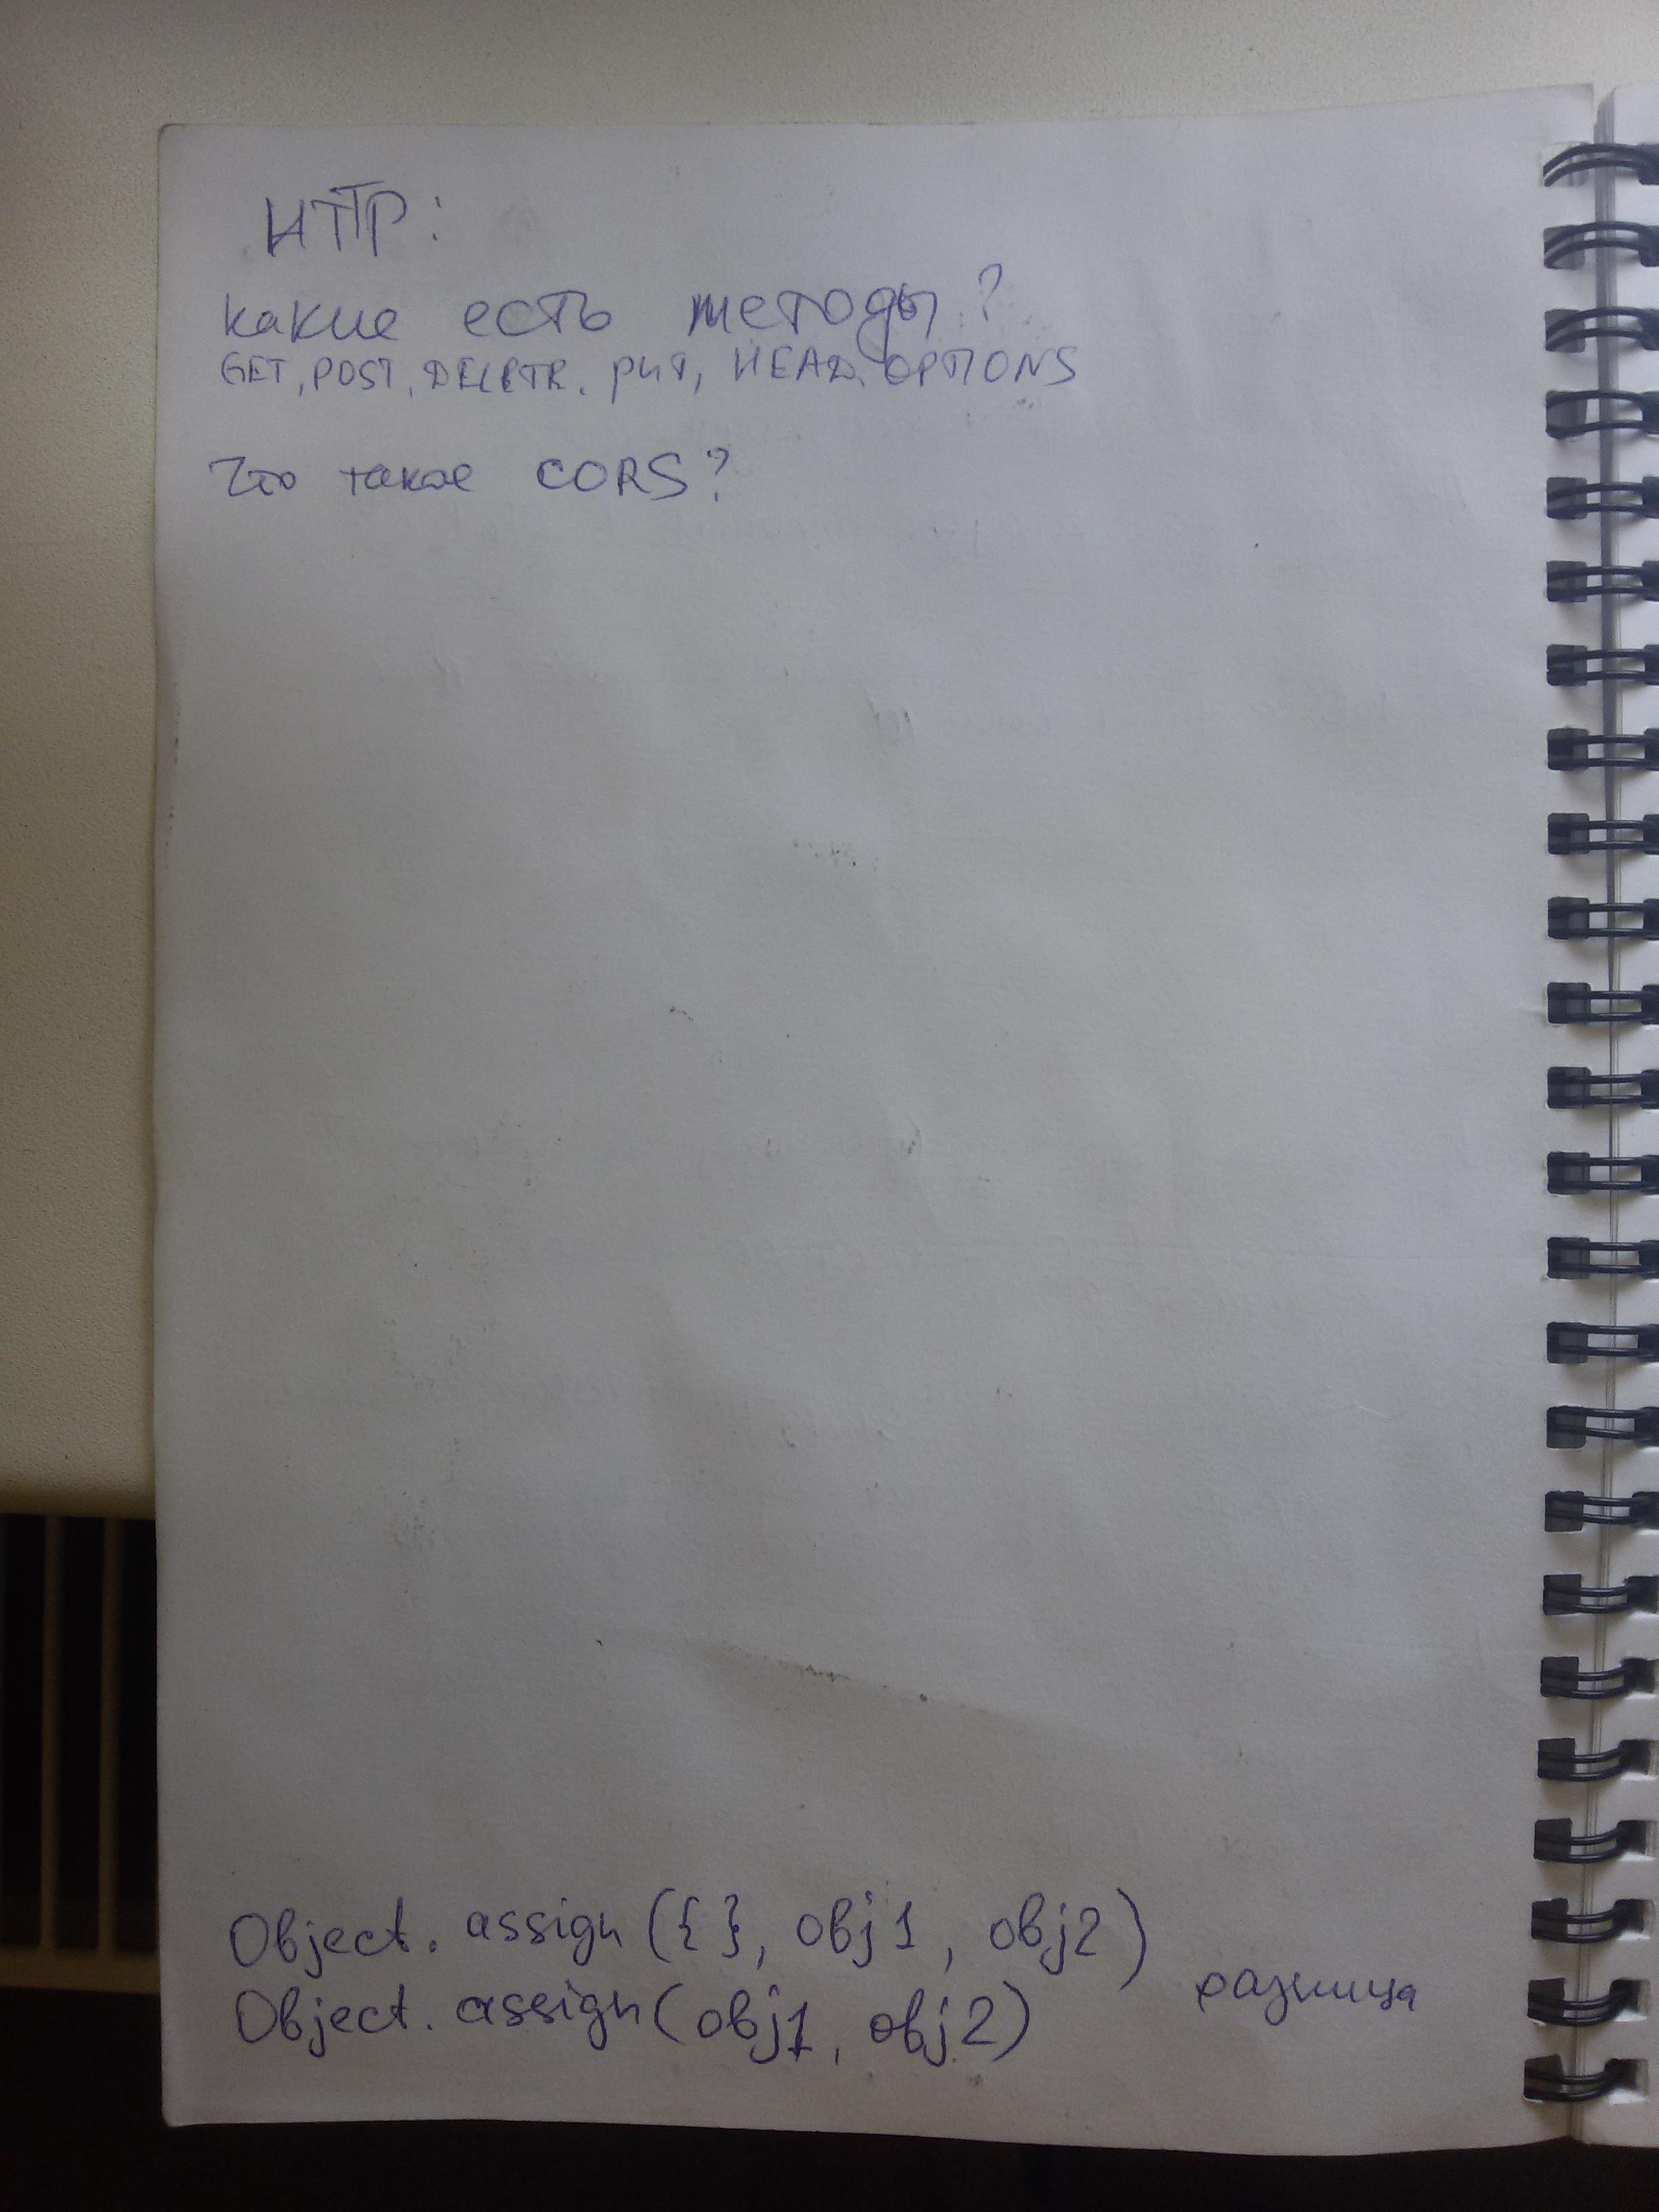 HTTP:
какие есть методы?
GET, POST, DELETE, PUT, HEAD, OPTIONS
Что такое CORS?
Object.assign({}, obj1, obj2)
разница
Object.assign(obj1, obj2)